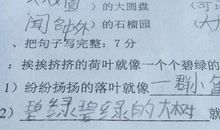 的大圆盘
的石榴园
、把句子写完整：7分
：挨挨挤挤的荷叶就像一个个碧绿的
1）纷纷扬扬的落叶就像 一群小
2）碧绿碧绿的大树 就